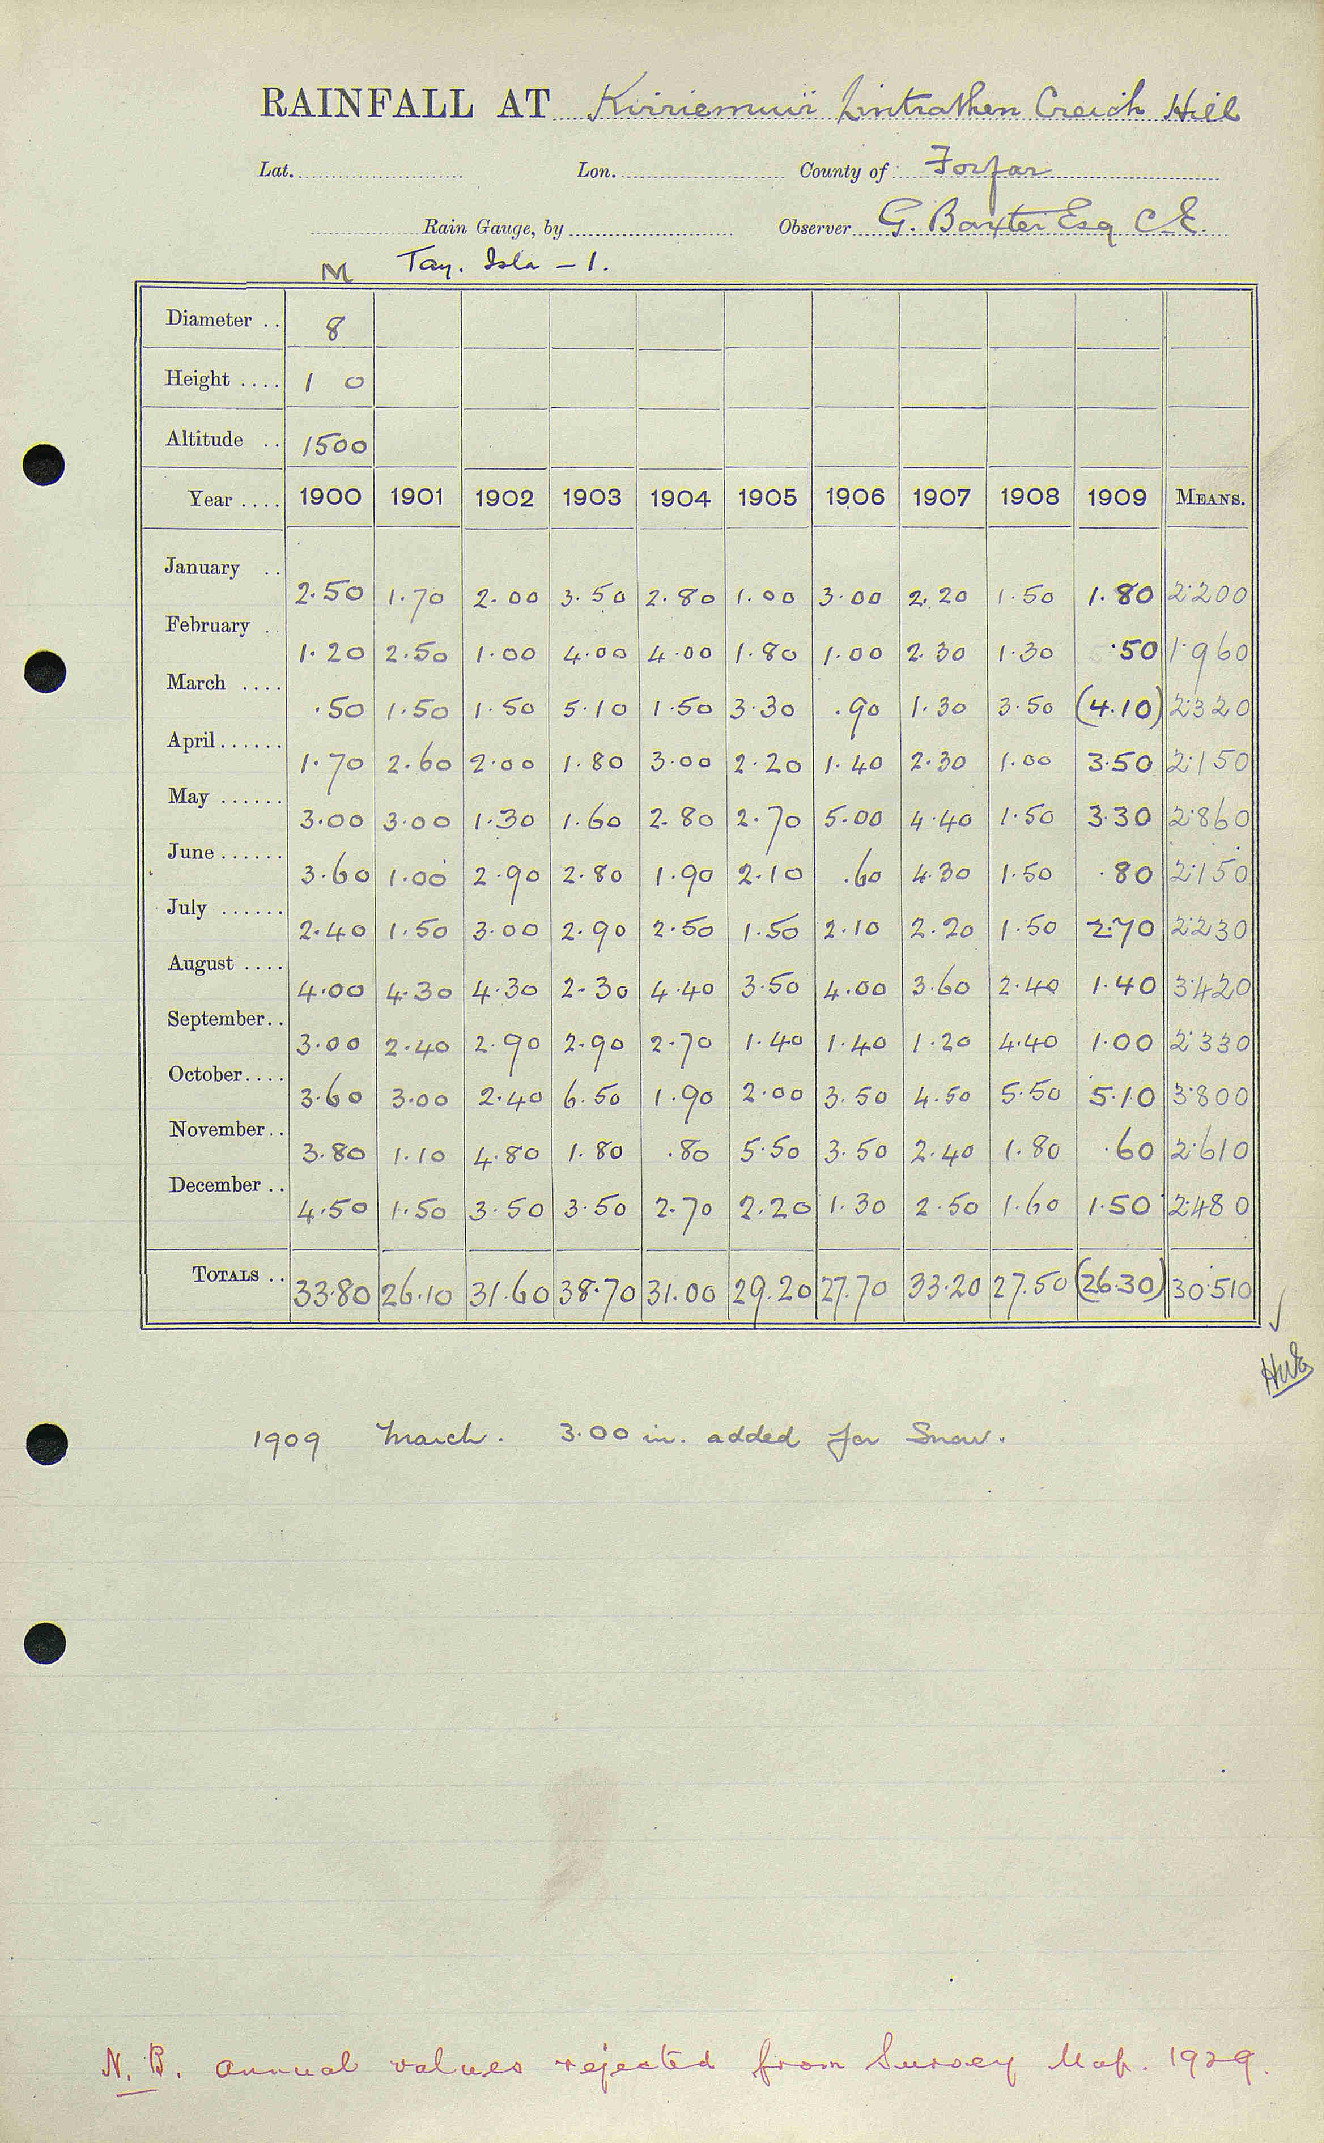 RAINFALL AT Kirriemuir Lintrathen Creich Hill
Lat. Lon. County of Forfar
Rain Gauge, by Observer G. Baxter Esq C.E.
M Tay. Isla - 1.
Diameter .. 8
Height .... 1 0
Altitude .. 1500
Year .... 1900 1901 1902 1903 1904 1905 1906 1907 1908 1909 MEANS.
January .. 2.50 1.70 2.00 3.50 2.80 1.00 3.00 2.20 1.50 1.80 2.200
February .. 1.20 2.50 1.00 4.00 4.00 1.80 1.00 2.30 1.30 .50 1.960
March .... .50 1.50 1.50 5.10 1.50 3.30 .90 1.30 3.50 (4.10) 2.320
April...... 1.70 2.60 2.00 1.80 3.00 2.20 1.40 2.30 1.00 3.50 2.150
May ...... 3.00 3.00 1.30 1.60 2.80 2.70 5.00 4.40 1.50 3.30 2.860
June...... 3.60 1.00 2.90 2.80 1.90 2.10 .60 4.30 1.50 .80 2.150
July ...... 2.40 1.50 3.00 2.90 2.50 1.50 2.10 2.20 1.50 2.70 2.230
August .... 4.00 4.30 4.30 2.30 4.40 3.50 4.00 3.60 2.40 1.40 3.420
September.. 3.00 2.40 2.90 2.90 2.70 1.40 1.40 1.20 4.40 1.00 2.330
October.... 3.60 3.00 2.40 6.50 1.90 2.00 3.50 4.50 5.50 5.10 3.800
November.. 3.80 1.10 4.80 1.80 .80 5.50 3.50 2.40 1.80 .60 2.610
December .. 4.50 1.50 3.50 3.50 2.70 2.20 1.30 2.50 1.60 1.50 2.480
TOTALS .. 33.80 26.10 31.60 38.70 31.00 29.20 27.70 33.20 27.50 (26.30) 30.510
1909 March. 3.00 in. added for Snow.
N.B. Annual values rejected from Survey Map. 1929.